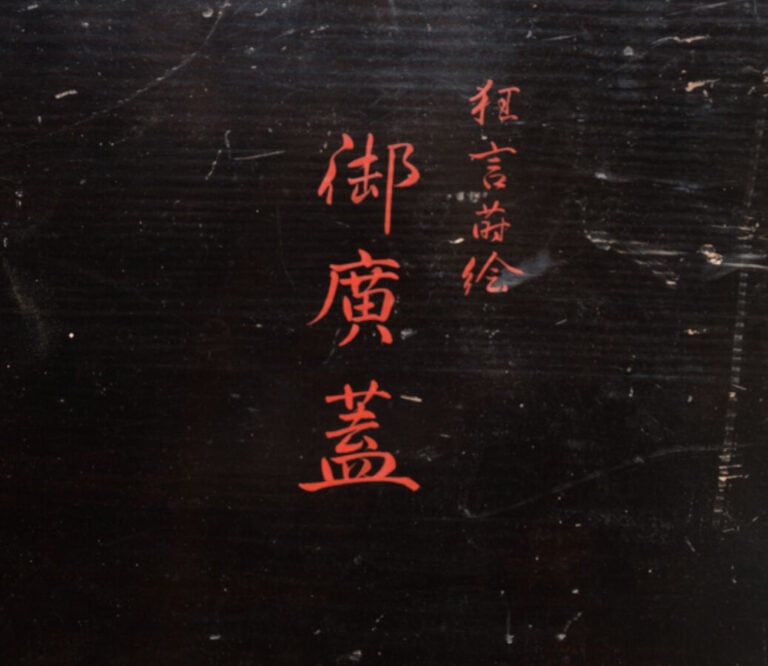 狂言蒔絵
御廣蓋